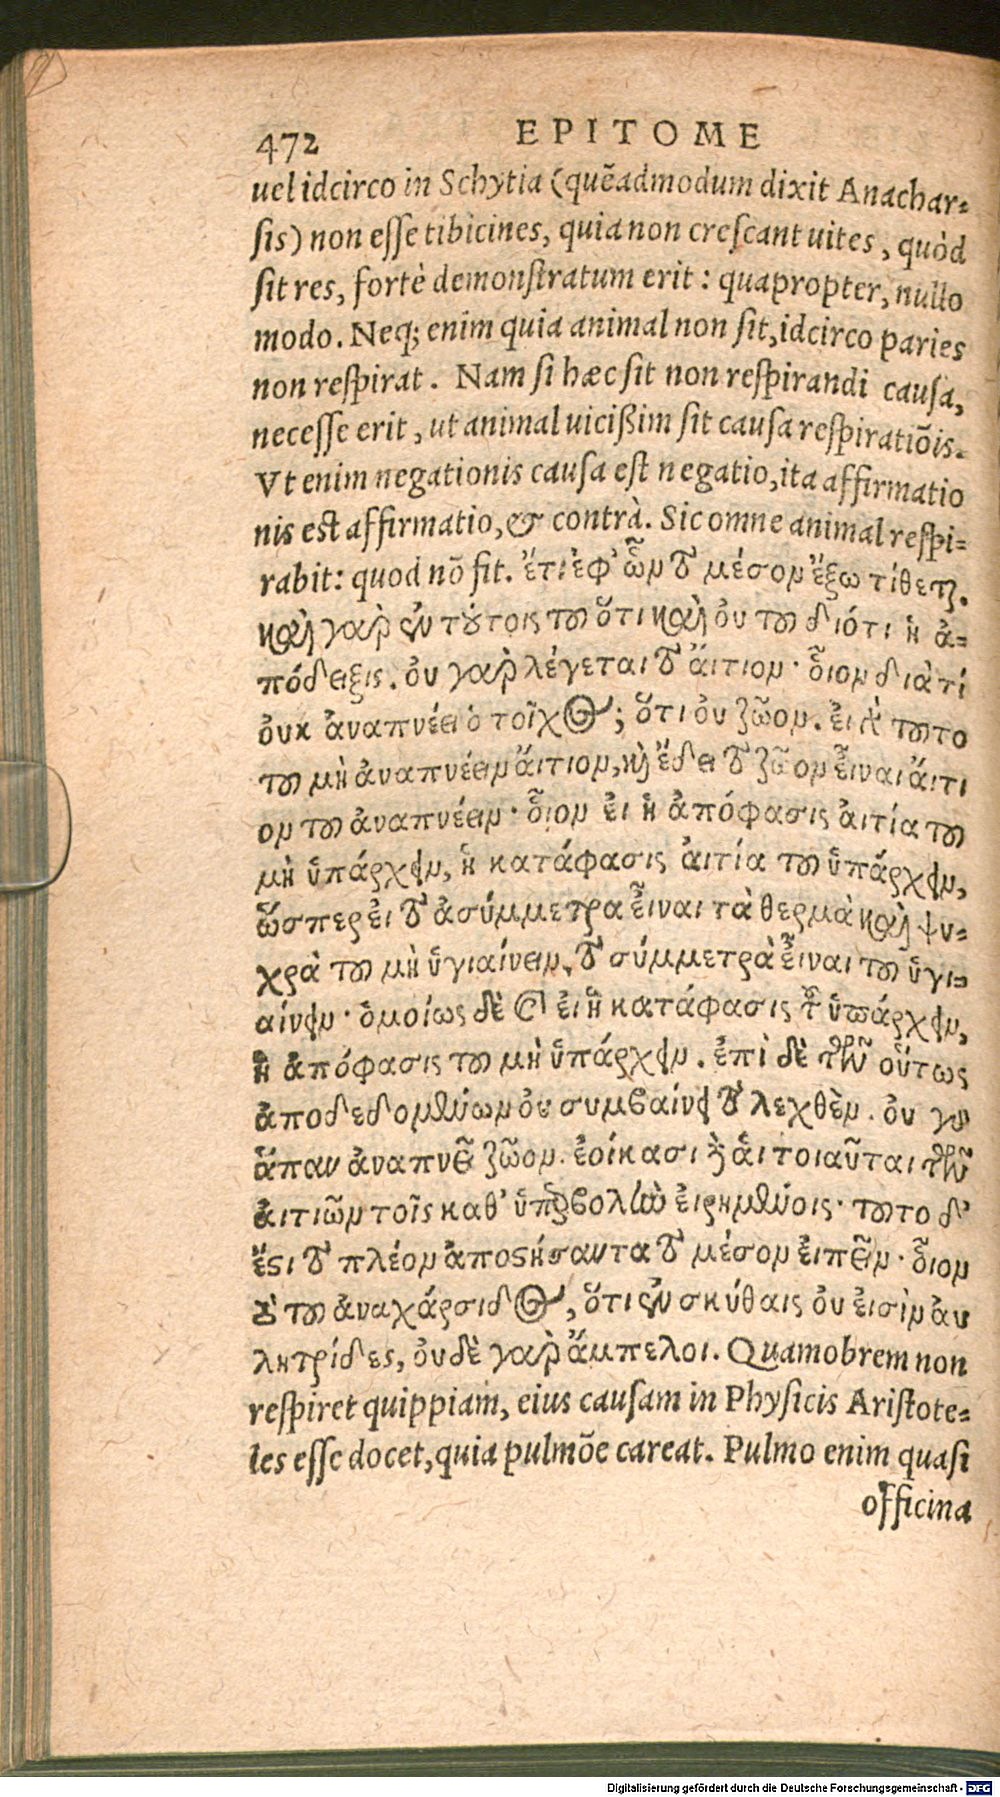 472 EPITOME
uel idcirco in Schytia (quēadmodum dixit Anachar-
sis) non esse tibicines, quia non crescant uites, quòd
sit res, fortè demonstratum erit: quapropter, nullo
modo. Neq; enim quia animal non sit, idcirco paries
non respirat. Nam si hæc sit non respirandi causa,
necesse erit, ut animal uicißim sit causa respiratiōis.
Vt enim negationis causa est negatio, ita affirmatio
nis est affirmatio, & contrà. Sic omne animal respi-
rabit: quod nō fit. ἔτι ἐφ' ὧν τὸ μέσον ἔξω τίθεται.
καὶ γαρ ἐν τούτοις του ὅτι καὶ οὐ του διότι ἡ ἀ-
πόδειξις. οὐ γαρ λέγεται τὸ ἄιτιον· οἷον διὰ τί
οὐκ ἀναπνέει ὁ τοῖχος; ὅτι οὐ ζῶον. ἐι γὰρ τουτο
του μὴ ἀναπνέειν ἄιτιον, καὶ ἔδει τὸ ζῶον εἶναι ἄιτι
ον του ἀναπνέειν· οἷον ἐι ἡ ἀπόφασις ἀιτία του
μὴ ὑπάρχειν, ἡ κατάφασις ἀιτία του ὑπάρχειν,
ὥσπερ ἐι τὸ ἀσύμμετρα εἶναι τὰ θερμὰ καὶ ψυ-
χρὰ του μὴ ὑγιαίνειν, τὸ σύμμετρὰ εἶναι του ὑγι-
αίνειν· ὁμοίως δὲ καὶ ἐι ἡ κατάφασις τοῦ ὑπάρχειν,
ἡ ἀπόφασις του μὴ ὑπάρχειν. ἐπὶ δὲ τῶν οὕτως
ἀποδεδομένων οὐ συμβαίνει τὸ λεχθὲν. οὐ γαρ
ἅπαν ἀναπνεῖ ζῶον. ἐοίκασι δ' ἁι τοιαῦται τῶν
ἀιτιῶν τοῖς καθ' ὑπερβολὴν ἐιρημένοις· τουτο δ'
ἔστι τὸ πλέον ἀποστήσαντα τὸ μέσον ἐιπεῖν· οἷον
τὸ του ἀναχάρσιδος, ὅτι ἐν σκύθαις οὐ ἐισὶν ἀυ
λητρίδες, οὐδὲ γαρ ἄμπελοι. Quamobrem non
respiret quippiam, eius causam in Physicis Aristote-
les esse docet, quia pulmōe careat. Pulmo enim quasi
officina
Digitalisierung gefördert durch die Deutsche Forschungsgemeinschaft - DFG